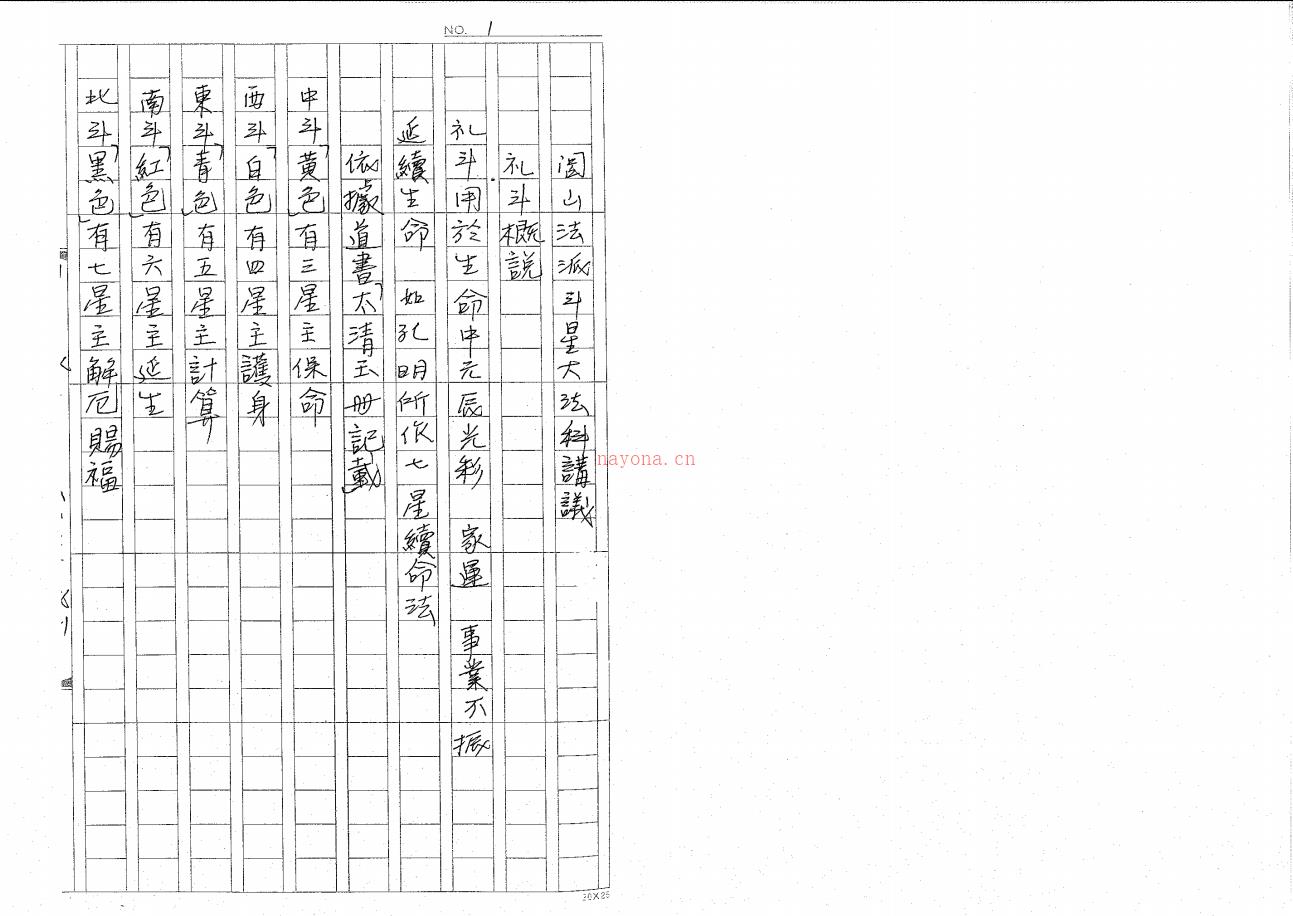 NO. 1
閭山法派斗星大法科講議
礼斗概説
礼斗用於生命中元辰光彩 家運 事業不振
延續生命 如孔明所作七星續命法
依據道書「太清玉册記載」
中斗「黃色」有三星主保命
西斗「白色」有四星主護身
東斗「青色」有五星主計算
南斗「紅色」有六星主延生
北斗「黑色」有七星主解厄賜福
nayona.cn
20X25